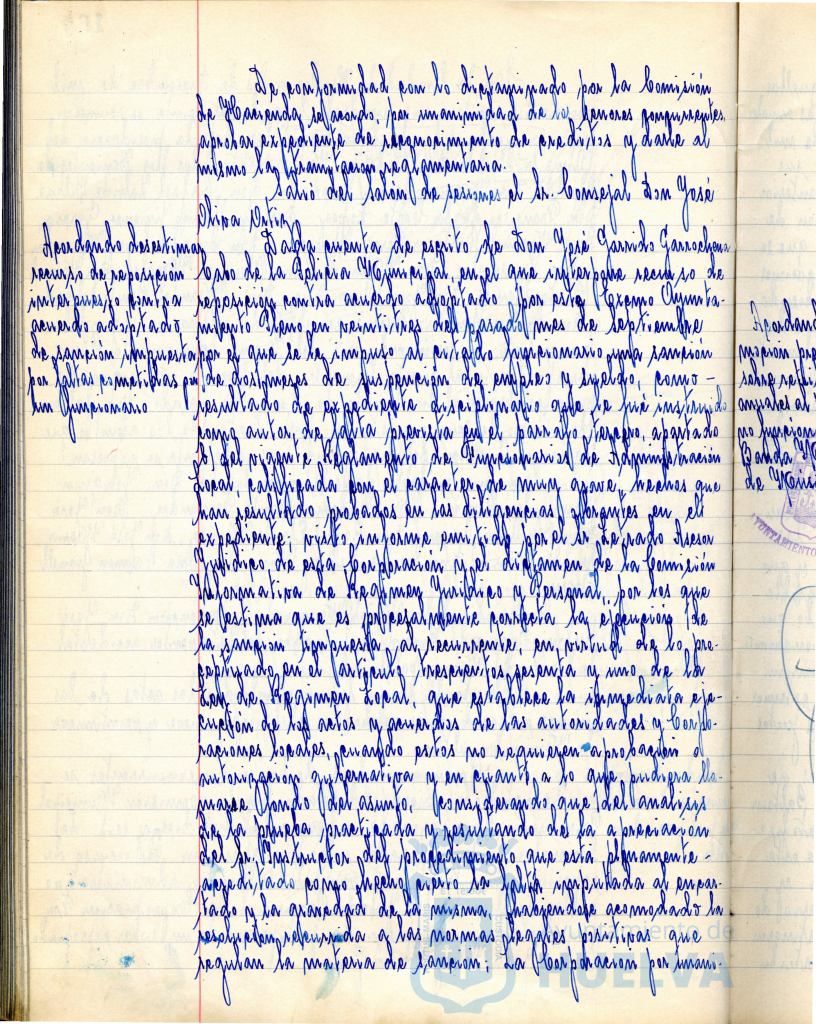 De conformidad con lo dictaminado por la Comisión
de Hacienda se acordo, por unanimidad de los Señores concurrentes,
aprobar expediente de reconocimiento de creditos y darle al
mismo la tramitacion reglamentaria.
Salió del Salón de sesiones el Sr. Consejal Don José
Oliva Ortiz.
Acordando desestimar
recurso de reposición
interpuesto contra
acuerdo adoptado
de sanción impuesta
por faltas cometidas por
un funcionario
Dada cuenta de escrito de Don José Garrido Garrochena
Cabo de la Policia Municipal, en el que interpone recurso de
reposición contra acuerdo adoptado por este Excmo Ayunta-
miento Pleno en veintitres del pasado mes de Septiembre
por el que se le impuso al citado funcionario una sanción
de dos meses de suspención de empleo y sueldo, como-
resultado de expediente disciplinario que le fue instruido
como autor de falta prevista en el parrafo tercero, apartado
B) del vigente Reglamento de Funcionarios de Administración
Local, calificada con el caracter de muy grave, hechos que
han resultado probados en las diligencias obrantes en el
expediente; visto informe emitido por el Sr. Letrado Asesor
Juridico de esta Corporación y el dictamen de la Comisión
Informativa de Regimen Juridico y Personal, por los que
se estima que es procesalmente correcta la ejecución de
la sanción impuesta al recurrente, en virtud de lo pre-
ceptuado en el articulo trescientos sesenta y uno de la
Ley de Regimen Local, que establece la inmediata eje-
cución de los actos y acuerdos de las autoridades y Corpo-
raciones locales, cuando estos no requieren aprobación o
autorización gubernativa y en cuanto a lo que pudiera lla-
marse fondo del asunto, considerando que del analisis
de la prueba practicada y resultando de la apreciación
del Sr. Instructor del procedimiento que esta plenamente-
acreditado como hecho cierto la falta imputada al encar-
tado y la gravedad de la misma, habiendose acomodado la
resolución recurrida a las normas legales positivas que
regulan la materia de sanción; La Corporacion por unani-
Acordando
sobre
no funcion
Banda
de Musi
AYUNTAMIENTO
Ayuntamiento de
HUELVA